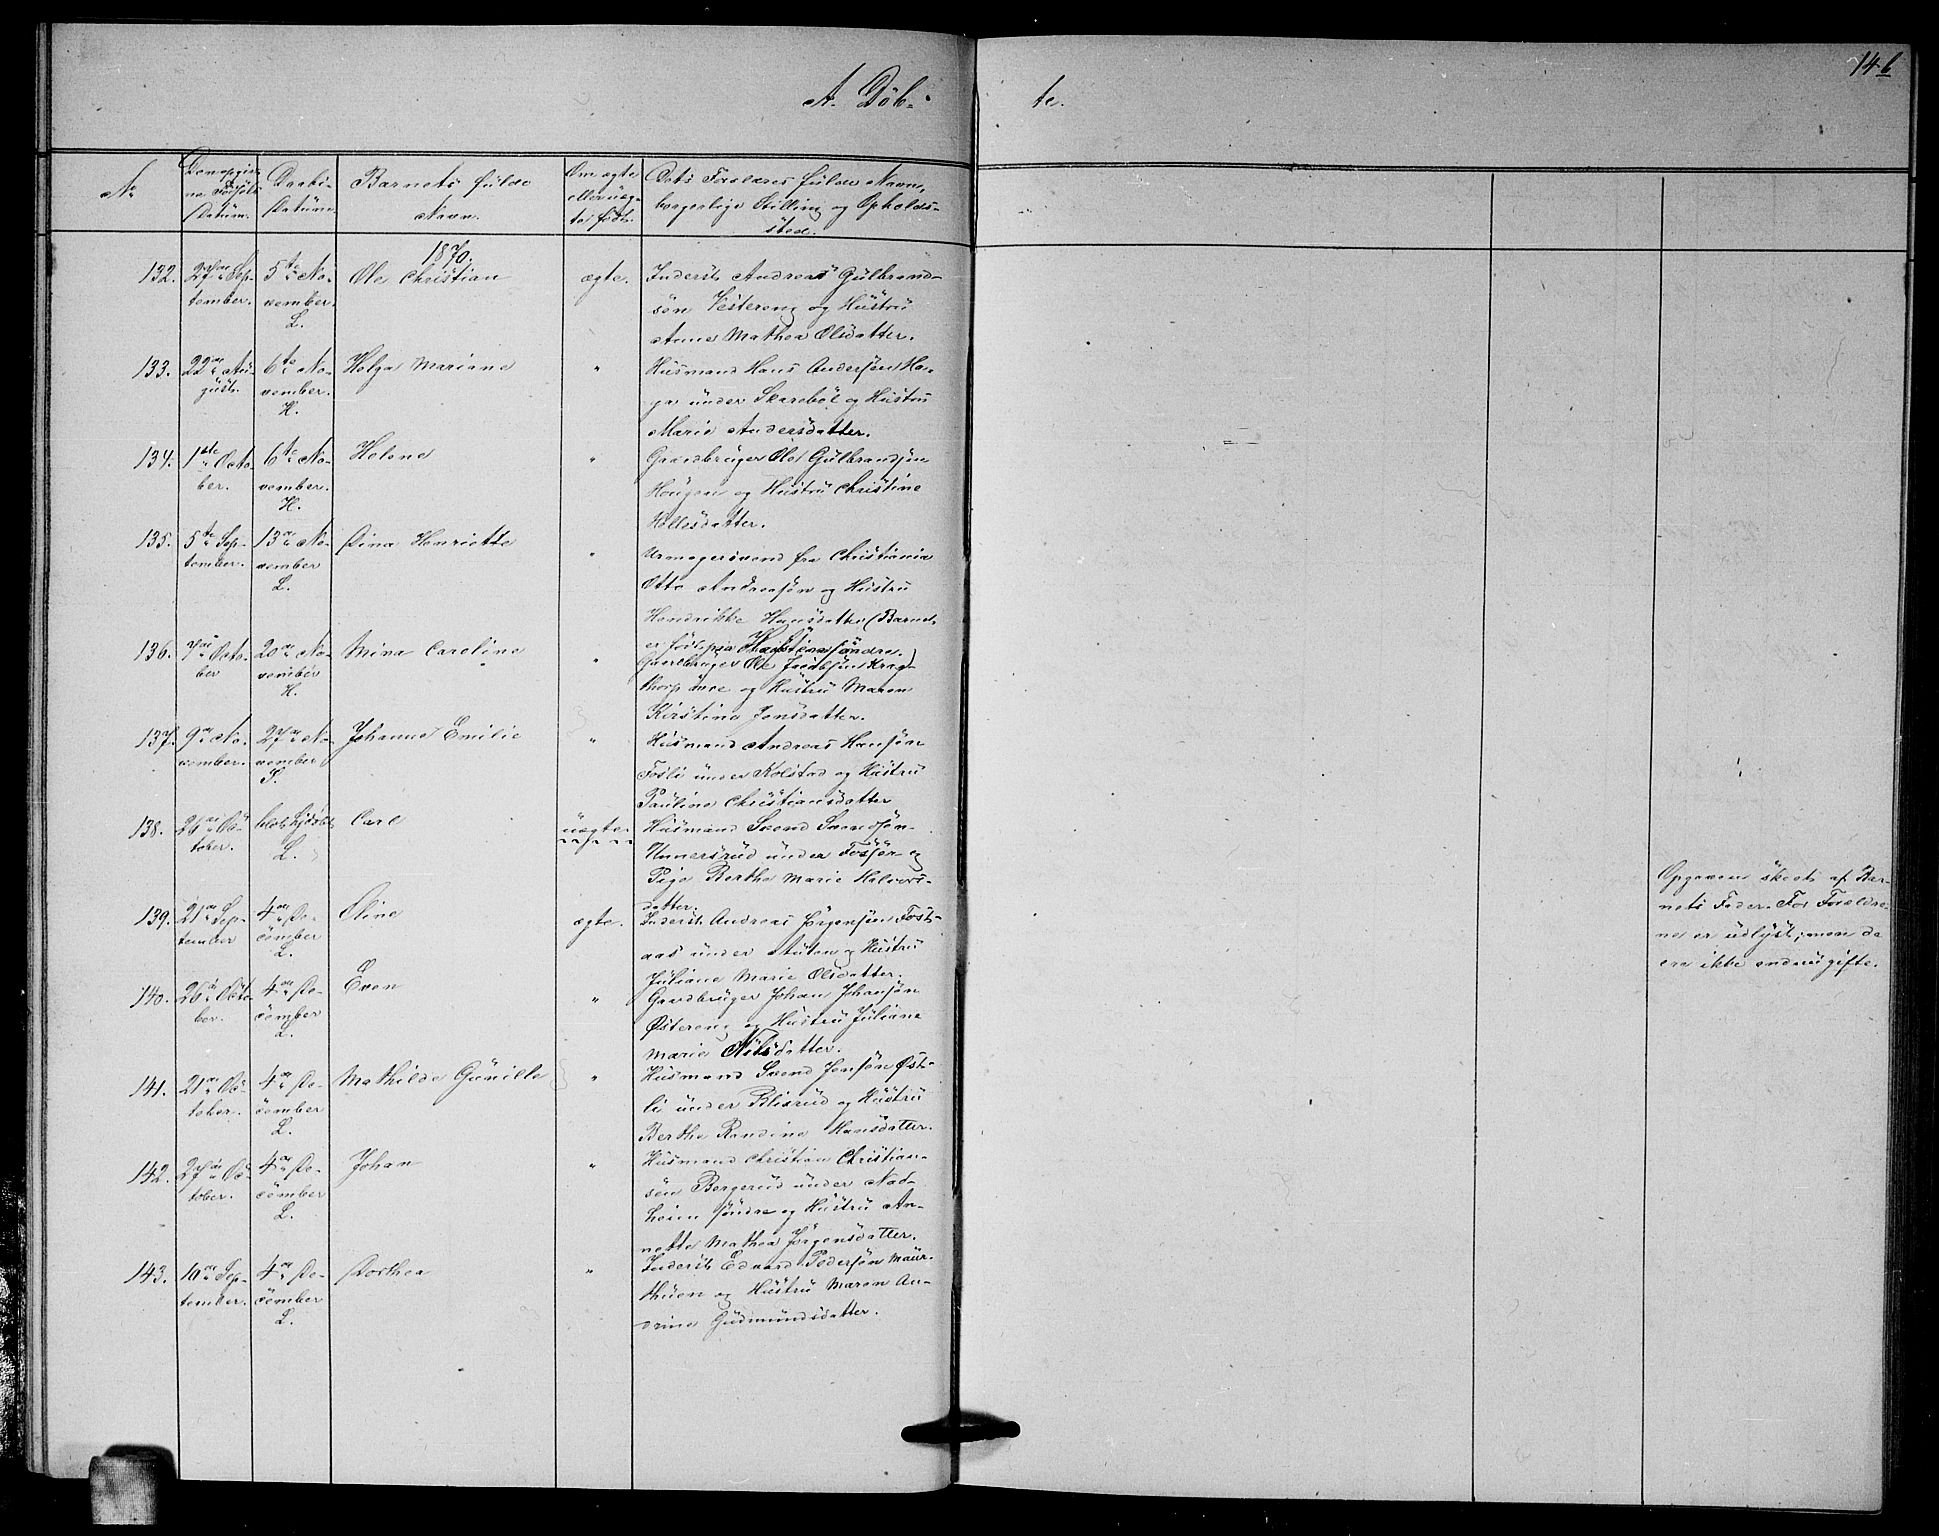 14b
A. Döb-
te.
No
Datum.
Daabs-
Datum
Barnets fulde
Navn.
Om ægte
eller uæg-
te født.
Dets Forældres fulde Navn,
borgerlige Stilling og Opholds-
sted.
1870.
132.
27de Sep-
tember.
5te No-
vember.
L.
Ole Christian
ægte.
Inderst Andreas Gulbrand-
sön Vestereng og Hustru
Anne Mathea Olsdatter.
133.
22de Au-
gust.
6te No-
vember.
H.
Helga Mariane
"
Husmand Hans Andersøn Ha-
ga under Skarebøl og Hustru
Marie Andersdatter.
134.
1ste Octo-
ber.
6te No-
vember.
H.
Helene
"
Gaardbruger Ole Gulbrandsøn
Hougen og Hustru Christine
Hellesdatter.
135.
5te Sep-
tember.
13de No-
vember
L.
Dina Henriette
"
Urmagersvend fra Christiania
Otto Andreasøn og Hustru
Hendrikke Hansdatter (Barnet
er født paa søndre.)
136.
7de Octo-
ber
20de No-
vember
H.
Mina Caroline
"
Gaardbruger Ole Jacobsøn Krog-
thorp övre og Hustru Maren
Kirstine Jensdatter.
137.
9de No-
vember.
27de No-
vember
S.
Johanne Emilie
"
Husmand Andreas Hansøn
Fosli under Kolstad og Hustru
Pauline Christiansdatter
138.
26de Oc-
tober.
blot hjdøbt
L.
Carl
uægte
Husmand Svend Svendsøn
Unnersrud under Fosser og
Pige Berthe Marie Halvors-
datter.
139.
21de Sep-
tember
4de De-
cember
L.
Oline
ægte.
Inderst Andreas Jørgensøn Fost-
aas under Auten og Hustru
Juliane Marie Olsdatter.
140.
26de Octo-
ber.
4de De-
cember
L.
Even
"
Gaardbruger Johan Johansøn
Østereng og Hustru Juliane
Marie Nilsdatter.
141.
21de Oc-
tober.
4de De-
cember
L.
Mathilde Gunille
"
Husmand Svend Jensøn Øst-
li under Blixrud og Hustru
Berthe Randine Hansdatter.
142.
27de Oc-
tober.
4de De-
cember
L.
Johan
"
Husmand Christian Christian-
søn Bergerud under Nad-
heim søndre og Hustru An-
nette Mathea Jørgensdatter.
143.
10de Sep-
tember.
4de De-
cember
L.
Dorthea
"
Inderst Edvard Pedersøn Maur-
thuen og Hustru Maren An-
drine Gudmundsdatter.
Opgaven skeet af Bar-
nets Fader. For Forældre-
ne er udlyst; men de
ere ikke endnu gifte.